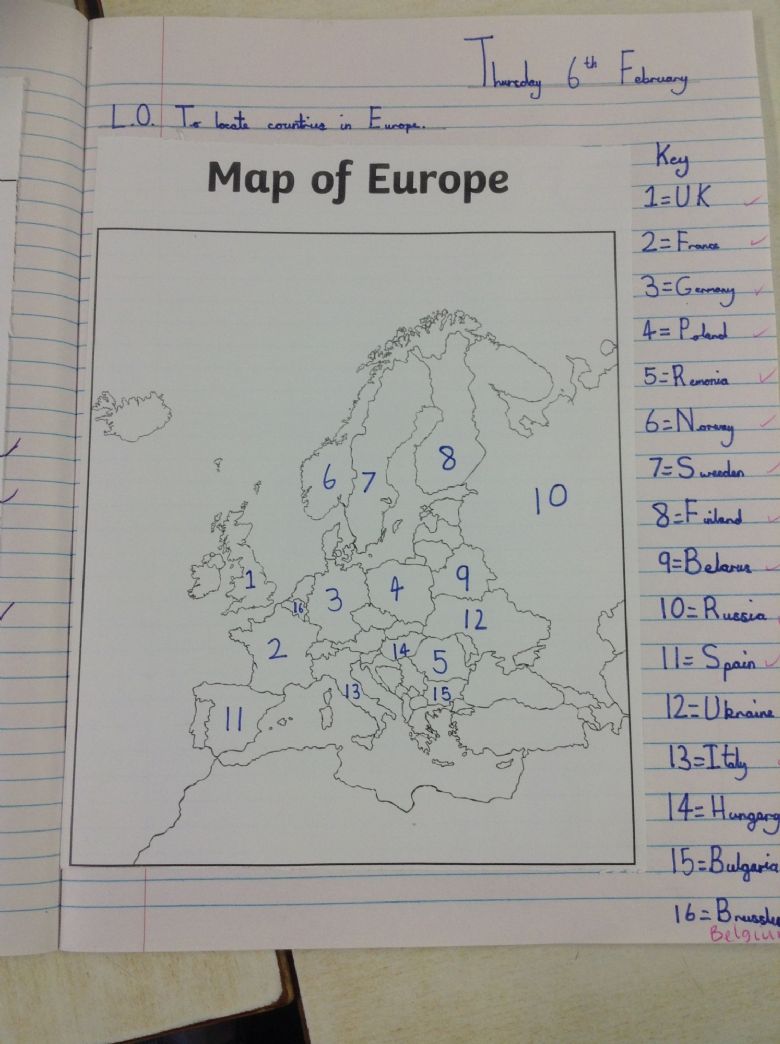 Thursday 6th February
L.O. To locate countries in Europe.
Map of Europe
Key
1=UK
2=France
3=Germany
4=Poland
5=Remonia
6=Norway
7=Sweeden
8=Finland
9=Belarus
10=Russia
11=Spain
12=Ukraine
13=Italy
14=Hungary
15=Bulgaria
16=Brussles
Belgium
8
6
7
10
1
16
3
4
9
12
2
14
5
13
15
11